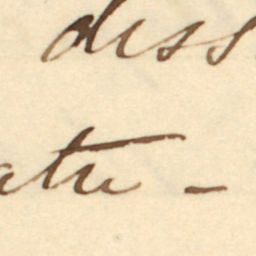 diss
atu -